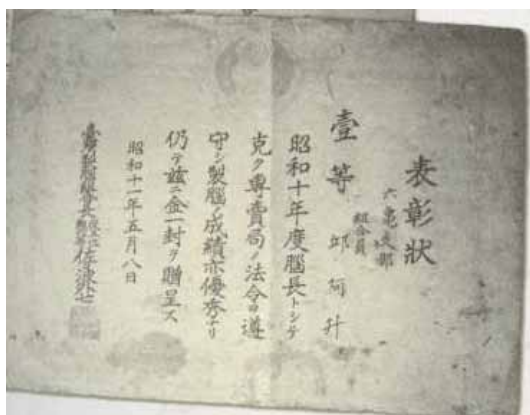 表彰状
六亀支部
組合員
壹等 邱阿升
昭和十年度腦長トシテ
克ク専賣局ノ法令ヲ遵
守シ製腦ノ成績亦優秀ナリ
仍テ茲ニ金一封ヲ贈呈ス
昭和十一年五月八日